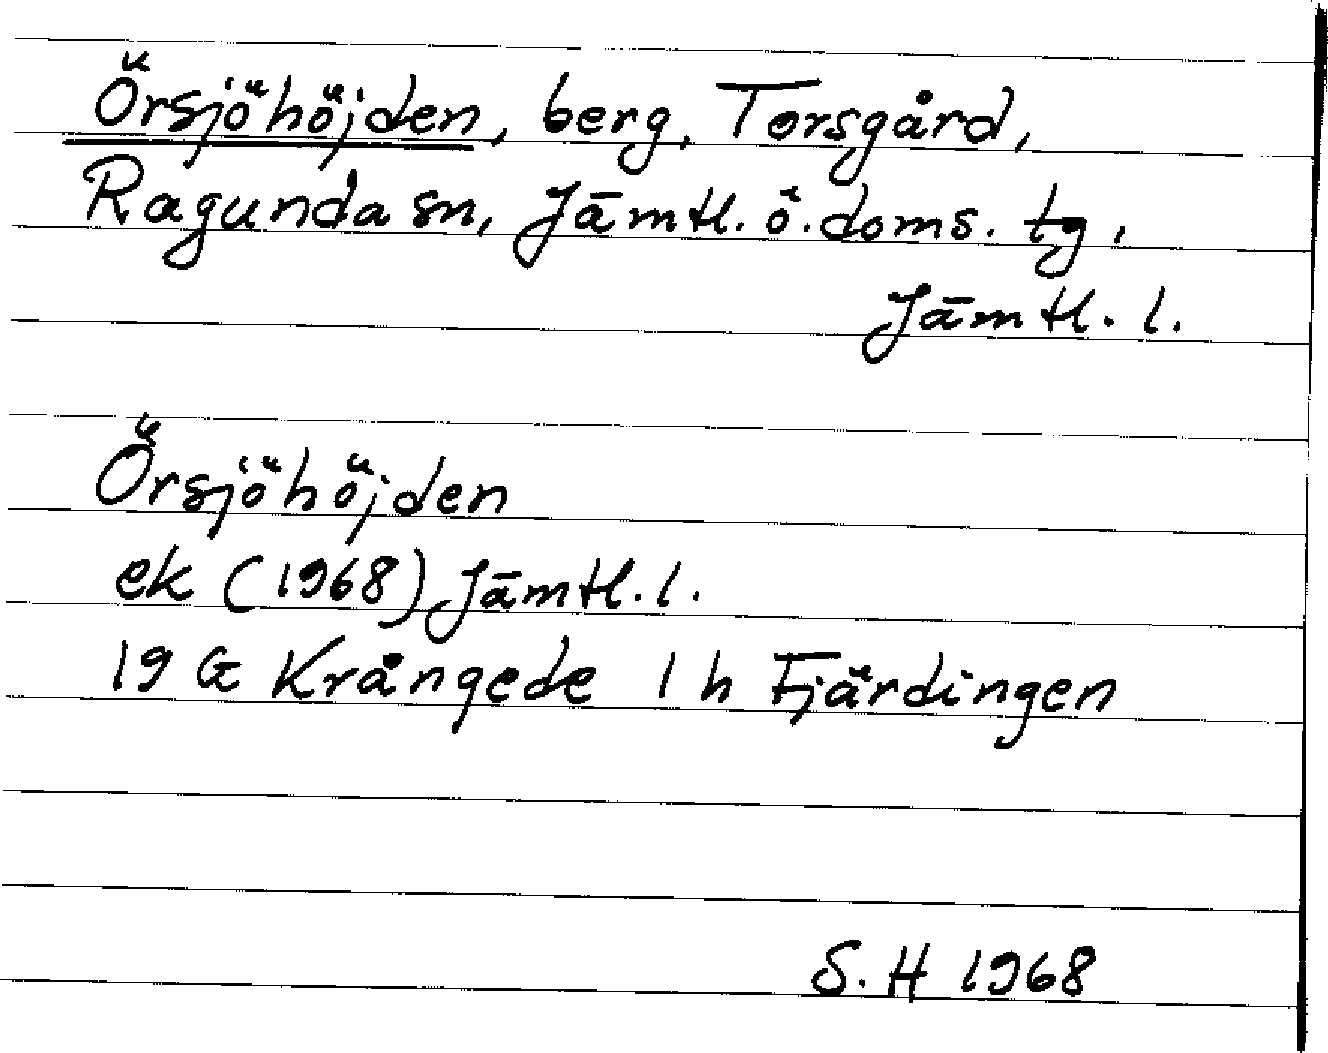 Örsjöhöjden, berg, Torsgård,
Ragunda sn, Jämtl. ö. doms. tg,
Jämtl. l.
Örsjöhöjden
ek (1968) Jämtl. l.
19 G Krångede 1 h Fjärdingen
S. H 1968